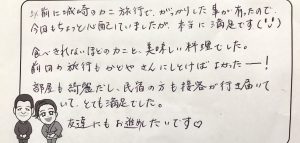 以前に城崎のカニ旅行で、がっかりした事が有ったので、
今回もちょっと心配していましたが、本当に満足です(¨)
食べきれないほどのカニと、美味しい料理でした。
前回の旅行もかどやさんにしとけばよかったー!
部屋も綺麗だし、民宿の方も接客が行き届いて
いて、とても満足でした。
友達にもお薦めしたいです♡